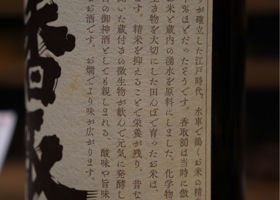 が確立した江戸時代、水車で搗くお米の精
%ほどだったそうです。香取80は当時に倣
米と蔵内の湧水を原料にしました。化学物
生き物を大切にした田んぼで育ったお米は、
ます。精米を抑えることで栄養が残り、昔な
いた蔵付きの微生物が歓んで元気に発酵し
の御神酒としても親しまれる、酸味や旨味
お酒です。お燗でより味が広がります。
香取